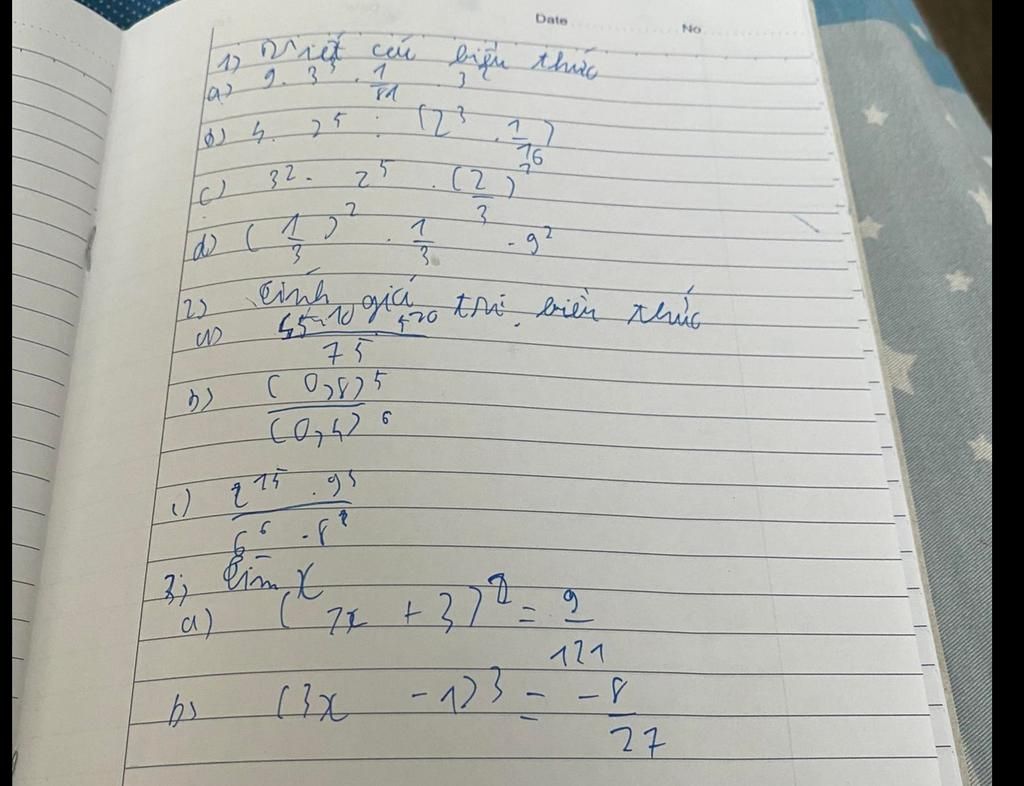 Date No
1) Viết các biểu thức
a) 9 . 3³ . 1/81 . 3
b) 4 . 2⁵ : (2³ . 1/16)
c) 3² . 2⁵ . (2/3)²
d) (1/3)² . 1/3 . 9²
2) Tính giá trị biểu thức
a) 45¹⁰ . 5²⁰ / 75
b) (0,8)⁵ / (0,4)⁶
c) 2¹⁵ . 9⁴ / 6⁶ . 8³
3) Tìm x
a) (7x + 3)² = 9/121
b) (3x - 1)3 = -8/27